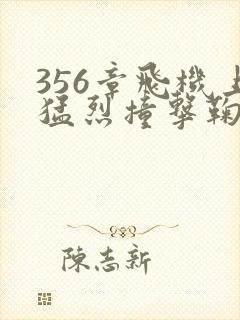 356章飛機上
猛烈撞擊鞠
陳志新